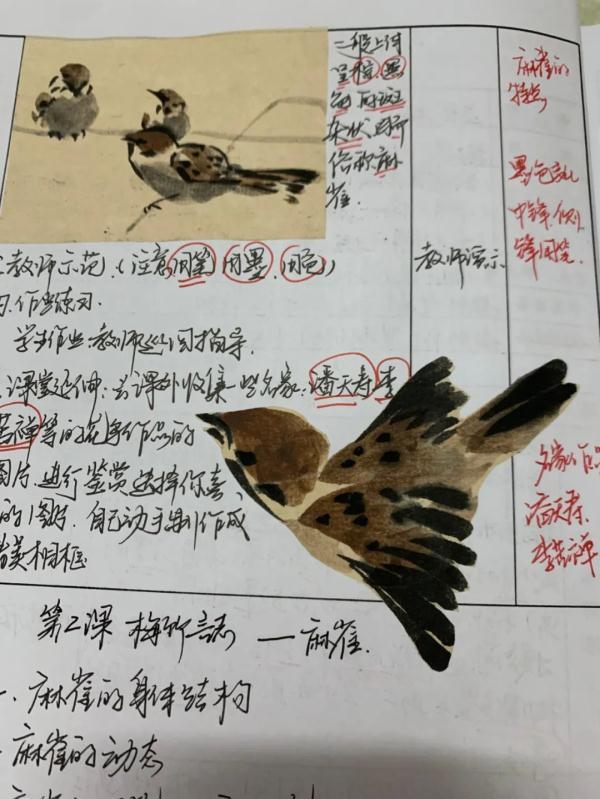 二股上付
呈粽黑
色的斑
杂状因所
俗称麻
雀.
麻雀的
特点
墨色变化
中锋侧
锋用笔.
教师示范.(注意用笔 用墨 用色)
教师演示
习.作业练习.
学生作业:教师巡回指导.
.课堂延伸:去课外收集一些名家:潘天寿 李
苦禅等的花鸟作品的
图片.进行鉴赏选择你喜
的1图片.自己动手制作成
精美相框
名家作品
潘天寿.
李苦禅
第二课 梅所言志 — 麻雀.
一. 麻雀的身体结构
麻雀的动态